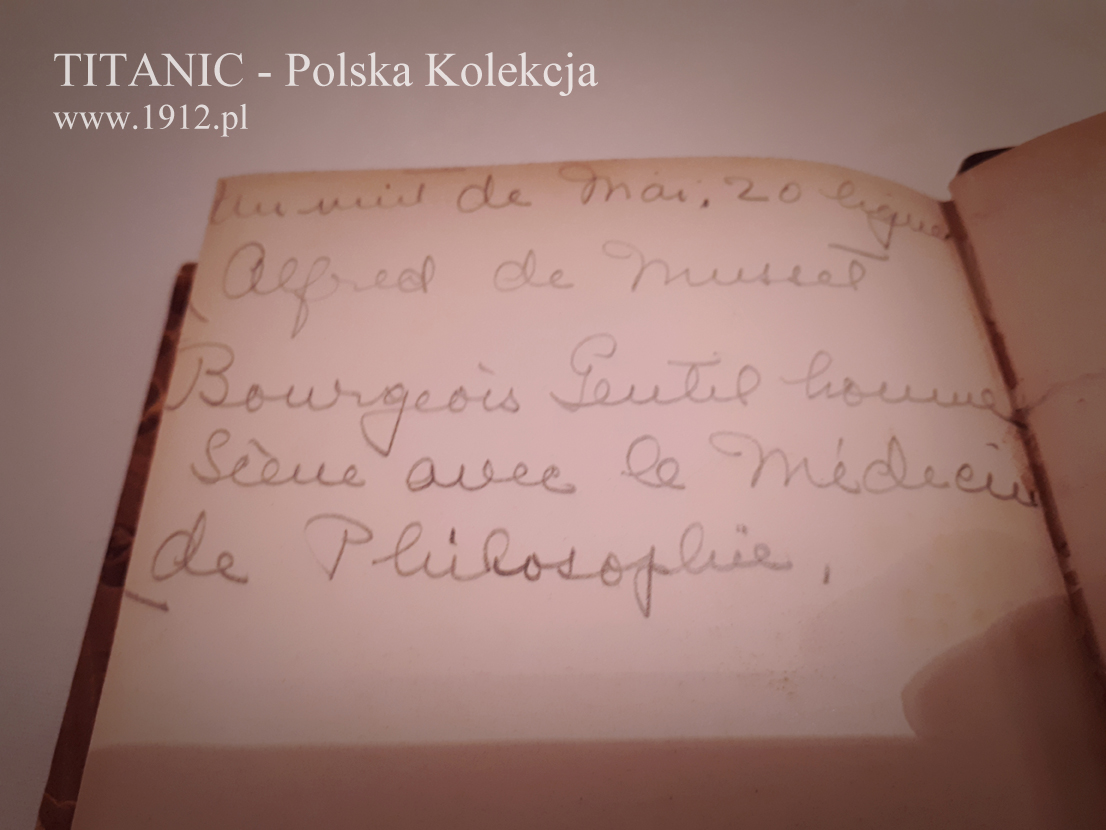 TITANIC - Polska Kolekcja
www.1912.pl
nuit de Mai, 20 lignes
Alfred de Musset
Bourgeois Gentil homme
Sène avec le Médecin
de Philosophie,